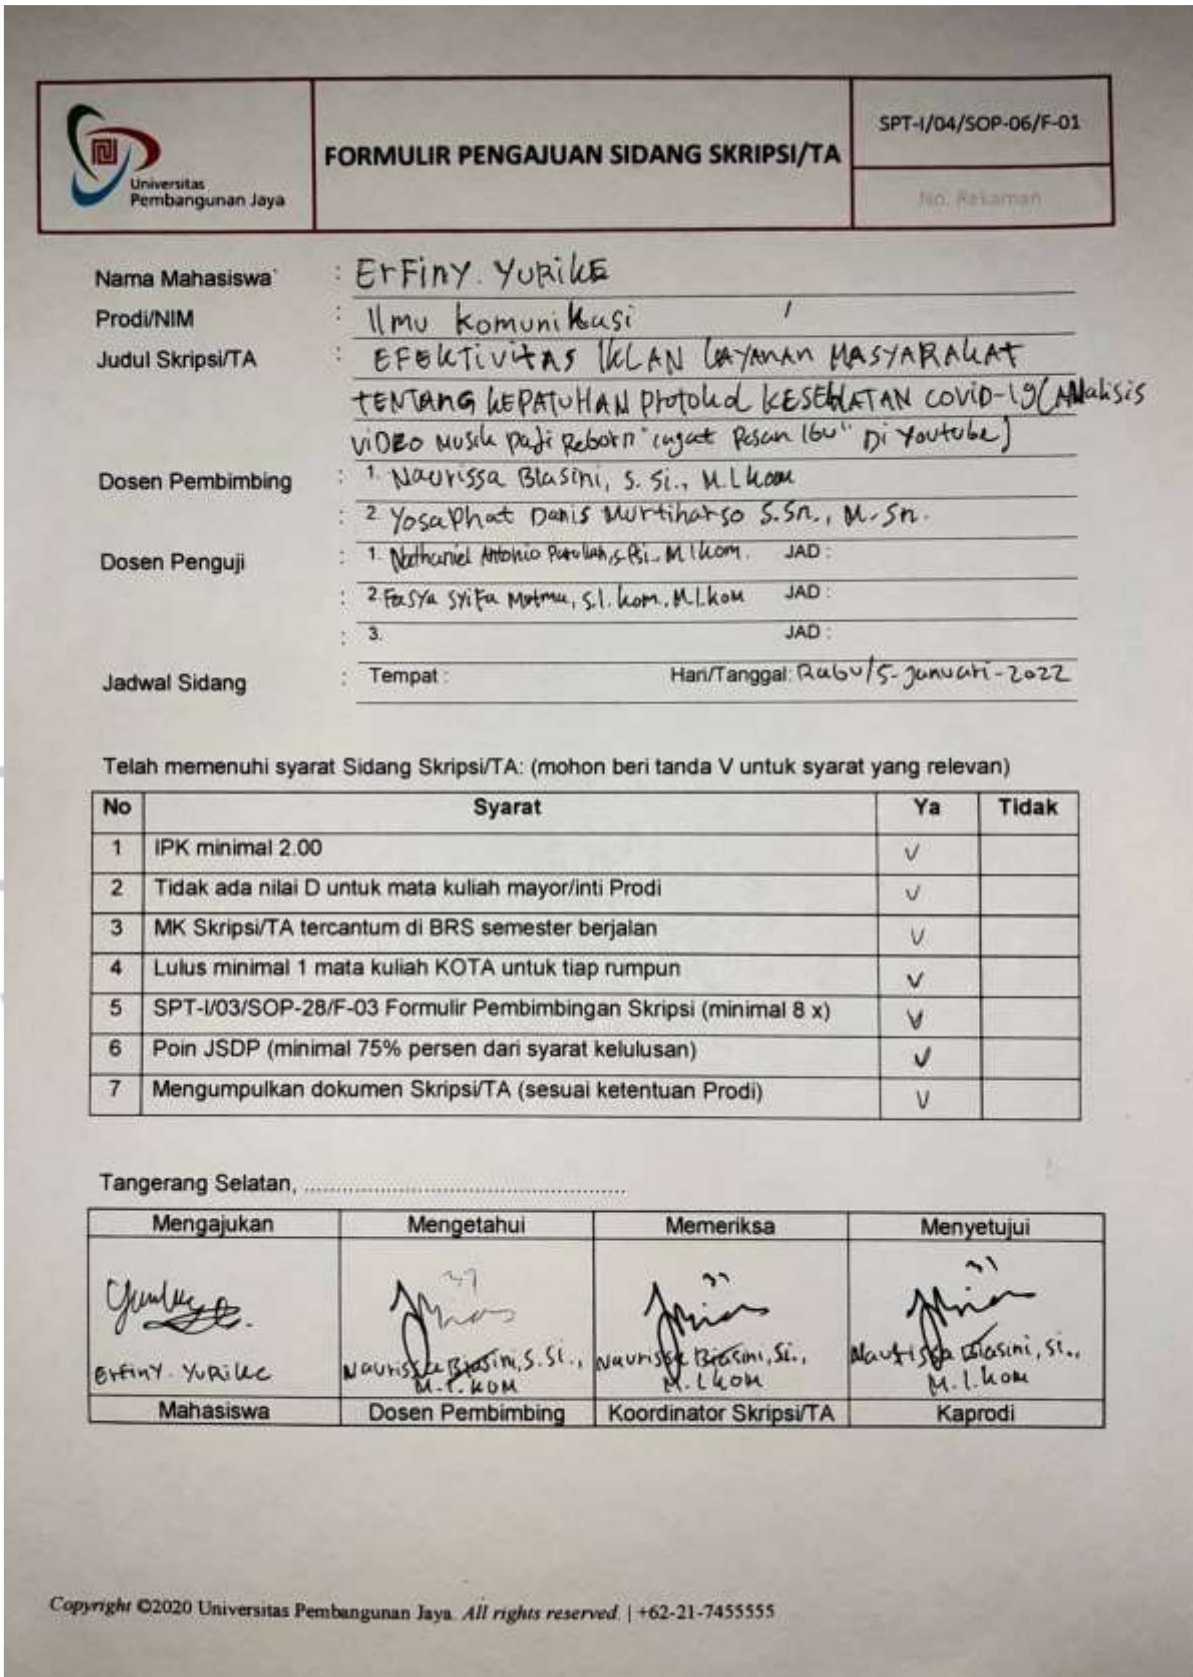 Universitas
Pembangunan Jaya
FORMULIR PENGAJUAN SIDANG SKRIPSI/TA
SPT-I/04/SOP-06/F-01
No. Rekaman
Nama Mahasiswa : Erfiny Yurike
Prodi/NIM : Ilmu Komunikasi /
Judul Skripsi/TA : EFEKTIVITAS IKLAN LAYANAN MASYARAKAT
TENTANG KEPATUHAN Protokol KESEHATAN COVID-19 (ANalisis
VIDEO Musik Padi Reborn "ingat Pesan Ibu" Di Youtube)
Dosen Pembimbing : 1. Naurissa Biasini, S.Si., M.I.Kom
: 2. Yosaphat Danis Murtiharso S.Sn., M.Sn.
Dosen Penguji : 1. Nathaniel Antonio S.Psi., M.Ikom. JAD :
: 2. Fasya Syifa Mutma, S.I.kom, M.I.kom JAD :
: 3. JAD :
Jadwal Sidang : Tempat : Hari/Tanggal: Rabu/5-Januari-2022
Telah memenuhi syarat Sidang Skripsi/TA: (mohon beri tanda V untuk syarat yang relevan)
No Syarat Ya Tidak
1 IPK minimal 2.00 V
2 Tidak ada nilai D untuk mata kuliah mayor/inti Prodi V
3 MK Skripsi/TA tercantum di BRS semester berjalan V
4 Lulus minimal 1 mata kuliah KOTA untuk tiap rumpun V
5 SPT-I/03/SOP-28/F-03 Formulir Pembimbingan Skripsi (minimal 8 x) V
6 Poin JSDP (minimal 75% persen dari syarat kelulusan) V
7 Mengumpulkan dokumen Skripsi/TA (sesuai ketentuan Prodi) V
Tangerang Selatan, ......................................................
Mengajukan Mengetahui Memeriksa Menyetujui
Erfiny Yurike Naurissa Biasini, S.Si., M.I.KOM Naurissa Biasini, Si., M.I.KOM Naurissa Biasini, Si., M.I.kom
Mahasiswa Dosen Pembimbing Koordinator Skripsi/TA Kaprodi
Copyright ©2020 Universitas Pembangunan Jaya. All rights reserved. | +62-21-7455555